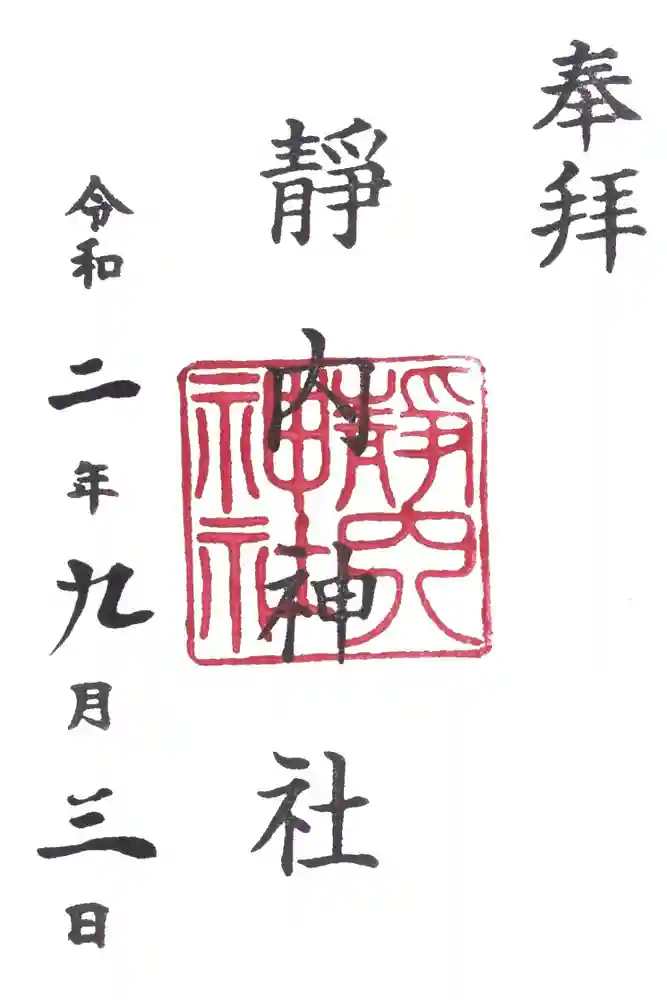 奉拝
靜内神社
靜内
神社
令和二年九月三日